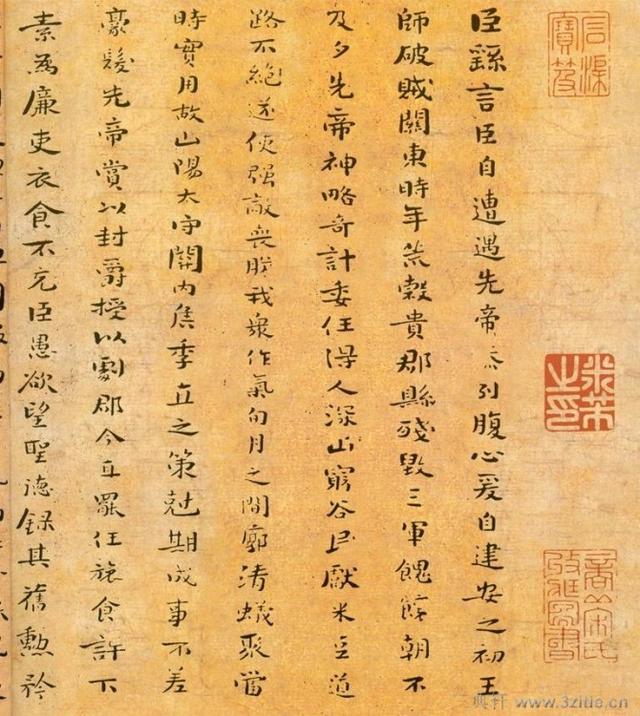 臣繇言臣自遭遇先帝忝列腹心爰自建安之初王
師破賊關東時年荒穀貴郡縣殘毀三軍餽饟朝不
及夕先帝神略奇計委任得人深山窮谷民獻米豆道
路不絕遂使強敵喪膽我眾作氣旬月之間廓清蟻聚當
時實用故山陽太守關內侯季直之策剋期成事不差
豪髮先帝賞以封爵授以劇郡今直罷任旅食許下
素為廉吏衣食不充臣愚欲望聖德錄其舊勳矜
米芾之印
www.3zitie.cn